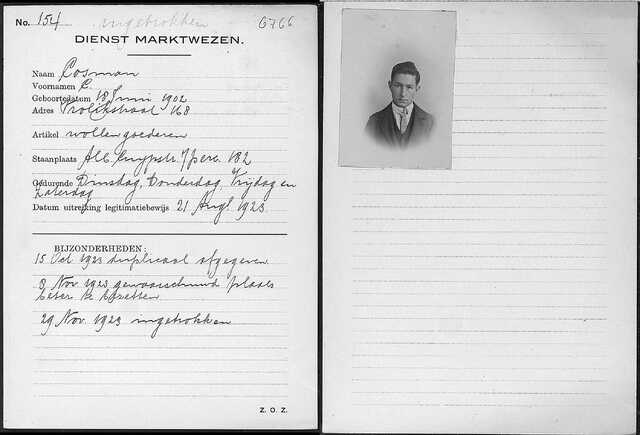 No. 154 ingetrokken 6766
DIENST MARKTWEZEN.
Naam Cosman
Voornamen C.
Geboortedatum 18 Juni 1902
Adres Prolikstraat 168
Artikel wollengoederen
Staanplaats Alb. Cuypstr. perc. 182
Gedurende Dinsdag, Donderdag, Vrijdag en
Zaterdag
Datum uitreiking legitimatiebewijs 21 Aug. 1923.
BIJZONDERHEDEN:
15 Oct 1923 duplicaat afgegeven
8 Nov. 1923 gewaarschuwd plaats
beter te bezetten
29 Nov. 1923 ingetrokken
Z. O. Z.